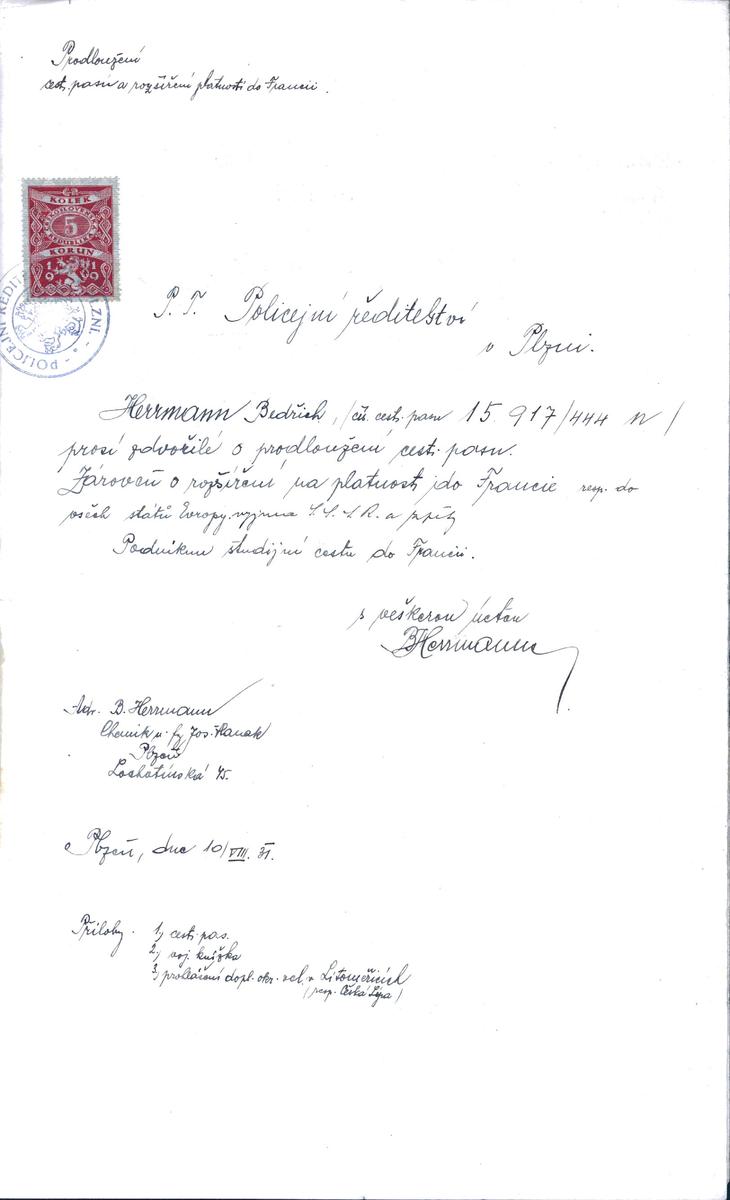 Prodloužení
cest. pasu a rozšíření platnosti do Francii.
KOLEK
ČESKOSLOVENSKÁ
5
REPUBLIKA
KORUN
1919
POLICEJNÍ ŘEDITELSTVÍ PLZNI.
P. T. Policejní ředitelství
v Plzni.
Herrmann Bedřich, /čís. cest. pasu 15 917/444 N/
prosí zdvořilé o prodloužení cest. pasu.
Zároveň o rozšíření na platnosti do Francie resp. do
všech států Evropy vyjma S. S. S. R. a
Podnikám študijní cestu do Francii.
s veškerou úctou
BHerrmann
Adr. B. Herrmann
Chemik u. fy Jos. Hanak
Plzeň
Lochotínská 45.
Plzeň, dne 10/VIII. 31.
Přílohy. 1, cest. pas.
2, voj. knížka
3, dopl. okr. vel. v Litoměřicích
(resp. Česká Lípa)